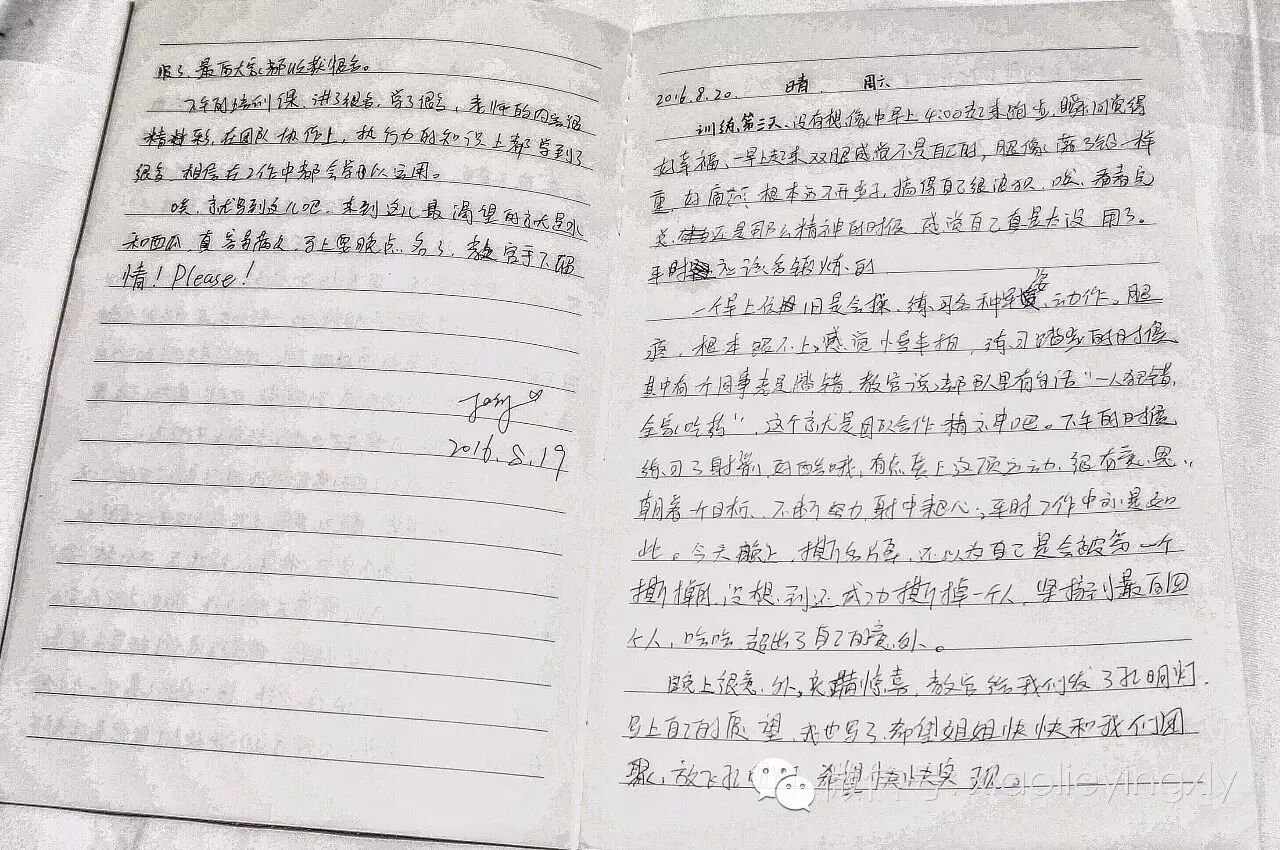 服了,最后大家都收获很多。
下午的培训课,讲了很多,学了很多,老师的内容很
精彩,在团队协作上,执行力的知识上都学到了
很多,相信在工作中都会学以运用。
唉,就写到这儿吧,来到这儿最渴望的就是水
和西瓜,真
马上要晚点名了,教官手下留
情!Please!
2016.8.19
2016.8.20 晴 周六
训练第三天,没有想像中早上4:00起来跑步,瞬间觉得
好幸福,一早上起来双眼感觉不是自己的,腿像灌了铅一样
重,好痛苦,根本迈不开步子,搞得自己很消积,唉,看着完
美,还是那么精神的时候,感觉自己真是太没用了。
平时应该多锻炼的
一个早上依旧是会操,练习各种军姿、动作,腿
痛,根本跟不上,感觉慢半拍,练习踏步的时候
其中有个同事老是踏错,教官说,部队里有句话"一人犯错,
全家吃药",这个就是团队合作精神吧。下午的时候
练习了射箭,对面
有点爱上这项运动,很有意思,
朝着个目标,不断努力,射中耙心,平时工作中亦是如
此。今天晚上,撕名片,还以为自己是会被第一个
撕掉的,没想到还成功撕掉一个人,坚持到最后四
个人,哈哈,超出了自己的意外。
晚上很意外,充满惊喜,教官给我们发了孔明灯,
写上自己的愿望,我也写了,希望姐姐快快和我们团
聚,放飞孔
希望快快实现。